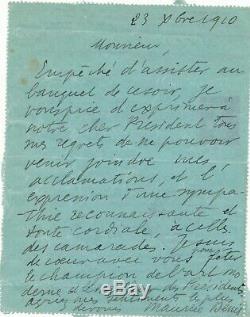 23 Xbre 1910
Monsieur,
Empêché d'assister au
banquet de ce soir, je
vous prie d'exprimer à
notre cher Président tous
mes regrets de ne pouvoir
venir joindre mes
acclamations, et l'
expression d'une sympa
thie reconnaissante et
toute cordiale, à celles
des camarades. Je suis
de cœur avec vous pour fêter
le champion de l'art mo
derne et des Présidents
agréez mes sentiments les plus
Maurice Denis